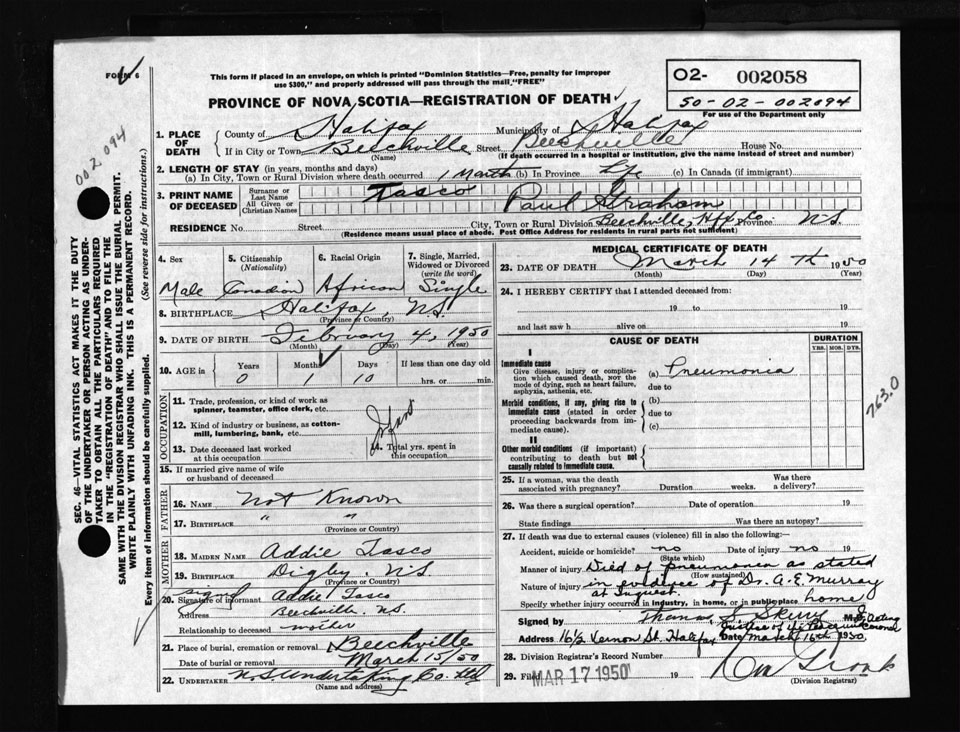 FORM 6
This form if placed in an envelope, on which is printed "Dominion Statistics—Free, penalty for improper
use $300," and properly addressed will pass through the mail "FREE"
O2- 002058
50-02-002094
For use of the Department only
PROVINCE OF NOVA SCOTIA—REGISTRATION OF DEATH
002094
1. PLACE OF DEATH
County of Halifax Municipality of Halifax
If in City or Town Beechville Street Beechville House No.
(Name) (If death occurred in a hospital or institution, give the name instead of street and number)
2. LENGTH OF STAY (in years, months and days)
(a) In City, Town or Rural Division where death occurred 1 Month (b) In Province Life (c) In Canada (if immigrant)
3. PRINT NAME OF DECEASED
Surname or Last Name Tasco
All Given or Christian Names Paul Abraham
RESIDENCE No. Street City, Town or Rural Division Beechville, Hfx Co Province N.S.
(Residence means usual place of abode. Post Office Address for residents in rural parts not sufficient)
4. Sex 5. Citizenship (Nationality) 6. Racial Origin 7. Single, Married, Widowed or Divorced (write the word)
Male Canadian African Single
8. BIRTHPLACE Halifax, N.S.
(Province or Country)
9. DATE OF BIRTH February 4, 1950
(Month) (Day) (Year)
10. AGE in Years Months Days If less than one day old
0 1 10 hrs. or min.
OCCUPATION
11. Trade, profession, or kind of work as spinner, teamster, office clerk, etc.
12. Kind of industry or business, as cotton-mill, lumbering, bank, etc.
Infant
13. Date deceased last worked at this occupation
14. Total yrs. spent in this occupation
15. If married give name of wife or husband of deceased
FATHER
16. NAME Not Known
17. BIRTHPLACE " "
(Province or Country)
MOTHER
18. MAIDEN NAME Addie Tasco
19. BIRTHPLACE Digby, N.S.
(Province or Country)
signed
20. Signature of informant Addie Tasco
Address Beechville, N.S.
Relationship to deceased mother
21. Place of burial, cremation or removal Beechville
Date of burial or removal March 15/50
22. UNDERTAKER N.S. Undertaking Co. Ltd
(Name and address)
MEDICAL CERTIFICATE OF DEATH
23. DATE OF DEATH March 14th 1950
(Month) (Day) (Year)
24. I HEREBY CERTIFY that I attended deceased from:
19 to 19
and last saw h alive on 19
CAUSE OF DEATH
DURATION
YRS. MOS. DYS.
I
Immediate cause
Give disease, injury or complication which caused death, NOT the mode of dying, such as heart failure, asphyxia, asthenia, etc.
(a) Pneumonia
due to
Morbid conditions, if any, giving rise to immediate cause (stated in order proceeding backwards from immediate cause).
(b)
due to
(c)
763.0
II
Other morbid conditions (if important) contributing to death but not causally related to immediate cause.
25. If a woman, was the death associated with pregnancy? Duration weeks. Was there a delivery?
26. Was there a surgical operation? Date of operation 19
State findings Was there an autopsy?
27. If death was due to external causes (violence) fill in also the following:—
Accident, suicide or homicide? no Date of injury no 19
(State which)
Manner of injury Died of pneumonia as stated
(How sustained)
Nature of injury in evidence of Dr. A. E. Murray
at Inquest.
Specify whether injury occurred in industry, in home, or in public place home
Signed by Thomas
Address 16½ Vernon St. Halifax Date March 16th 1950
28. Division Registrar's Record Number
29. Filed MAR 17 1950 19
(Division Registrar)
SEC. 46—VITAL STATISTICS ACT MAKES IT THE DUTY
OF THE UNDERTAKER OR PERSON ACTING AS UNDER-
TAKER TO OBTAIN ALL THE PARTICULARS REQUIRED
IN THE "REGISTRATION OF DEATH" AND TO FILE THE
SAME WITH THE DIVISION REGISTRAR WHO SHALL ISSUE THE BURIAL PERMIT.
WRITE PLAINLY WITH UNFADING INK. THIS IS A PERMANENT RECORD.
Every item of information should be carefully supplied. (See reverse side for instructions.)